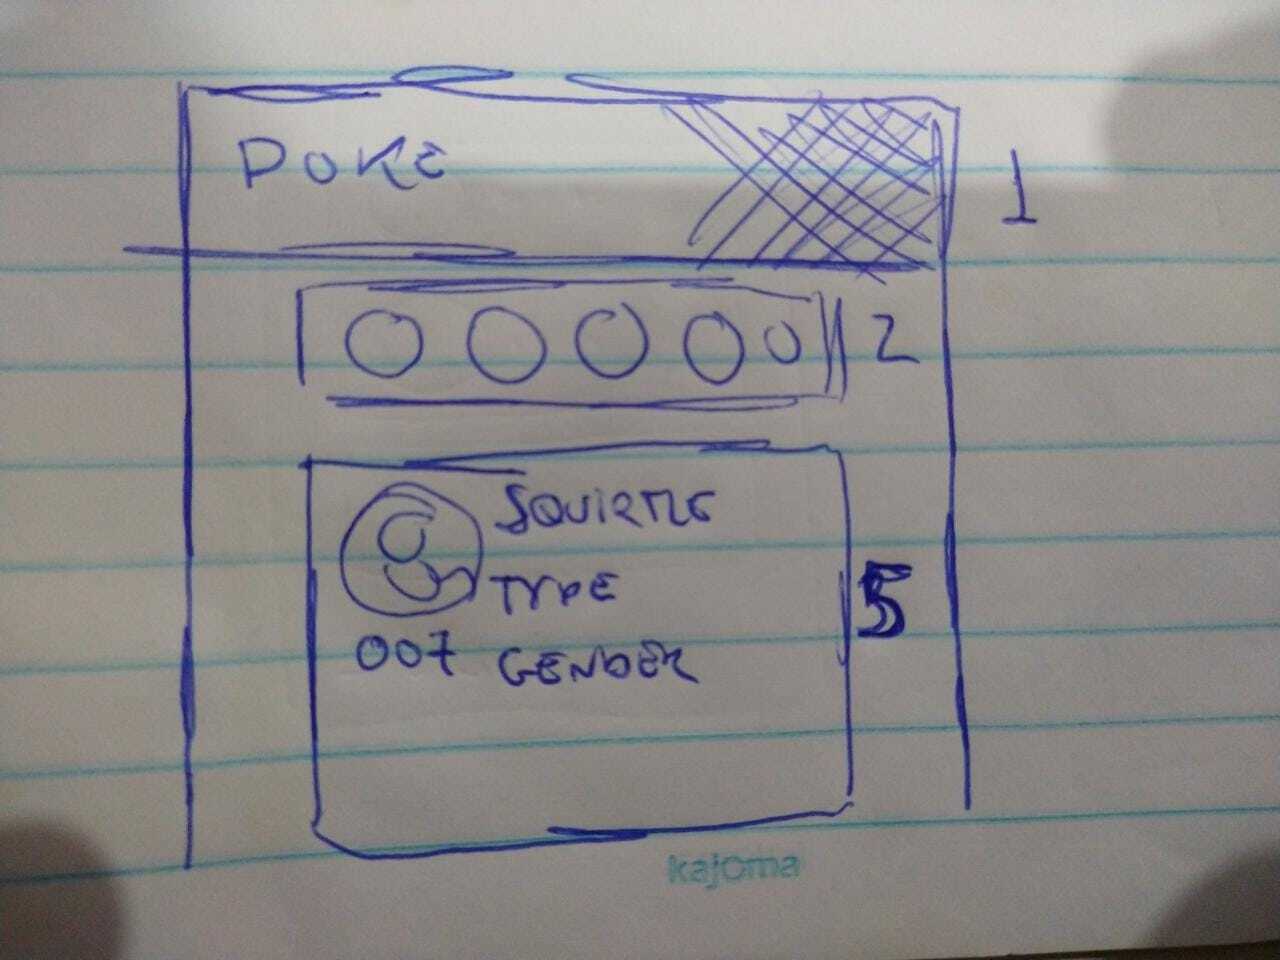 POKE
1
2
SQUIRTLE
TYPE
5
007 GENDER
kajoma